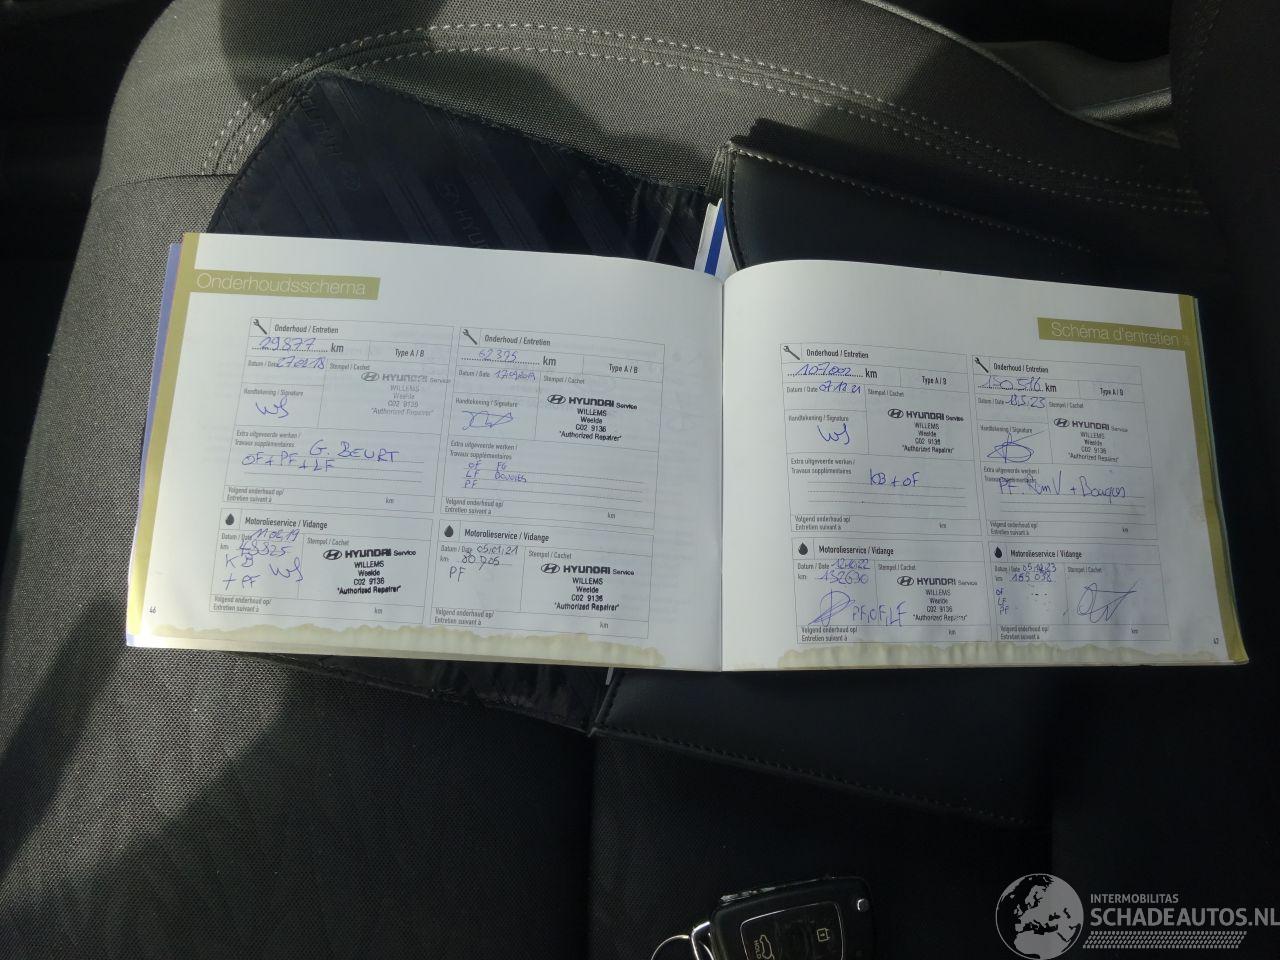 HYUNDAI
Onderhoudsschema
Onderhoud / Entretien
29877 km Type A / B
Datum / Date Stempel / Cachet
HYUNDAI Service
WILLEMS
Weelde
C02 9136
"Authorized Repairer"
Handtekening / Signature
WS
Extra uitgevoerde werken /
Travaux supplémentaires
G. BEURT
OF + PF + LF
Volgend onderhoud op/
Entretien suivant à km
Motorolieservice / Vidange
Datum / Date Stempel / Cachet
km
KB WS
+ PF
HYUNDAI Service
WILLEMS
Weelde
C02 9136
"Authorized Repairer"
Volgend onderhoud op/
Entretien suivant à km
46
Onderhoud / Entretien
62375 km Type A / B
Datum / Date Stempel / Cachet
HYUNDAI Service
WILLEMS
Weelde
C02 9136
"Authorized Repairer"
Handtekening / Signature
Extra uitgevoerde werken /
Travaux supplémentaires
OF
LF BOUGIES
PF
Volgend onderhoud op/
Entretien suivant à km
Motorolieservice / Vidange
Datum / Date 05/01/21 Stempel / Cachet
km
PF
HYUNDAI Service
WILLEMS
Weelde
C02 9136
"Authorized Repairer"
Volgend onderhoud op/
Entretien suivant à km
Schéma d'entretien
Onderhoud / Entretien
107.002 km Type A / B
Datum / Date 07.12.21 Stempel / Cachet
HYUNDAI Service
WILLEMS
Weelde
C02 9136
"Authorized Repairer"
Handtekening / Signature
WS
Extra uitgevoerde werken /
Travaux supplémentaires
KB + OF
Volgend onderhoud op/
Entretien suivant à km
Motorolieservice / Vidange
Datum / Date Stempel / Cachet
km 132630
HYUNDAI Service
WILLEMS
Weelde
C02 9136
"Authorized Repairer"
PF, OF, LF
Volgend onderhoud op/
Entretien suivant à km
Onderhoud / Entretien
150.518 km Type A / B
Datum / Date Stempel / Cachet
HYUNDAI Service
WILLEMS
Weelde
C02 9136
"Authorized Repairer"
Handtekening / Signature
Extra uitgevoerde werken /
Travaux supplémentaires
PF + Bougies
Volgend onderhoud op/
Entretien suivant à km
Motorolieservice / Vidange
Datum / Date Stempel / Cachet
km
OF
LF
PF
Volgend onderhoud op/
Entretien suivant à km
47
HOLD
INTERMOBILITAS
SCHADEAUTOS.NL